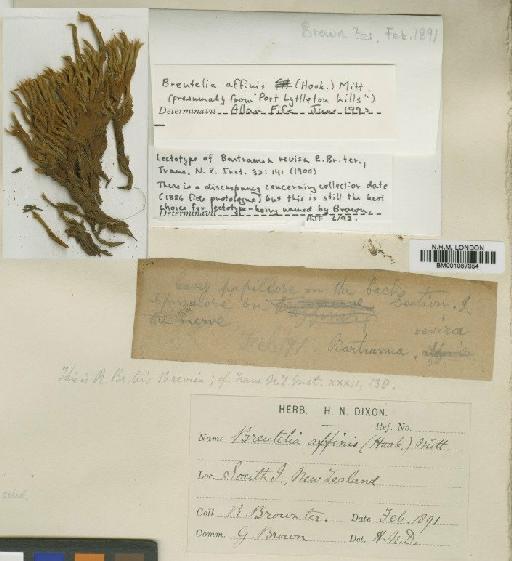 Brown ter. Feb. 1891
Breutelia affinis (Hook.) Mitt
(presumably from "Port Lyttleton hills")
Determinavit Allan Fife June 1992
Lectotype of Bartramia revisa R.Br.ter.,
Trans. N.Z. Inst. 32: 141 (1900)
There is a discrepancy concerning collection date
(1886 fide protologue) but this is still the best
choice for lectotype - being named by Brown.
Determinavit 2/93.
N.H.M. LONDON
BM001087364
Leaves papillose on the back
Epapillose on Section I
the nerve
revisa
Feb. 91. Bartramia affinis
This is R. Br. ter's B. revisa; cf. Trans N.Z. Inst. xxxii, 139.
HERB. H. N. DIXON.
Ref. No.
Name Breutelia affinis (Hook.) Mitt.
Loc. South I., New Zealand
Coll. R. Brown ter. Date Feb. 1891
Comm. G Brown Det. H.N.D.